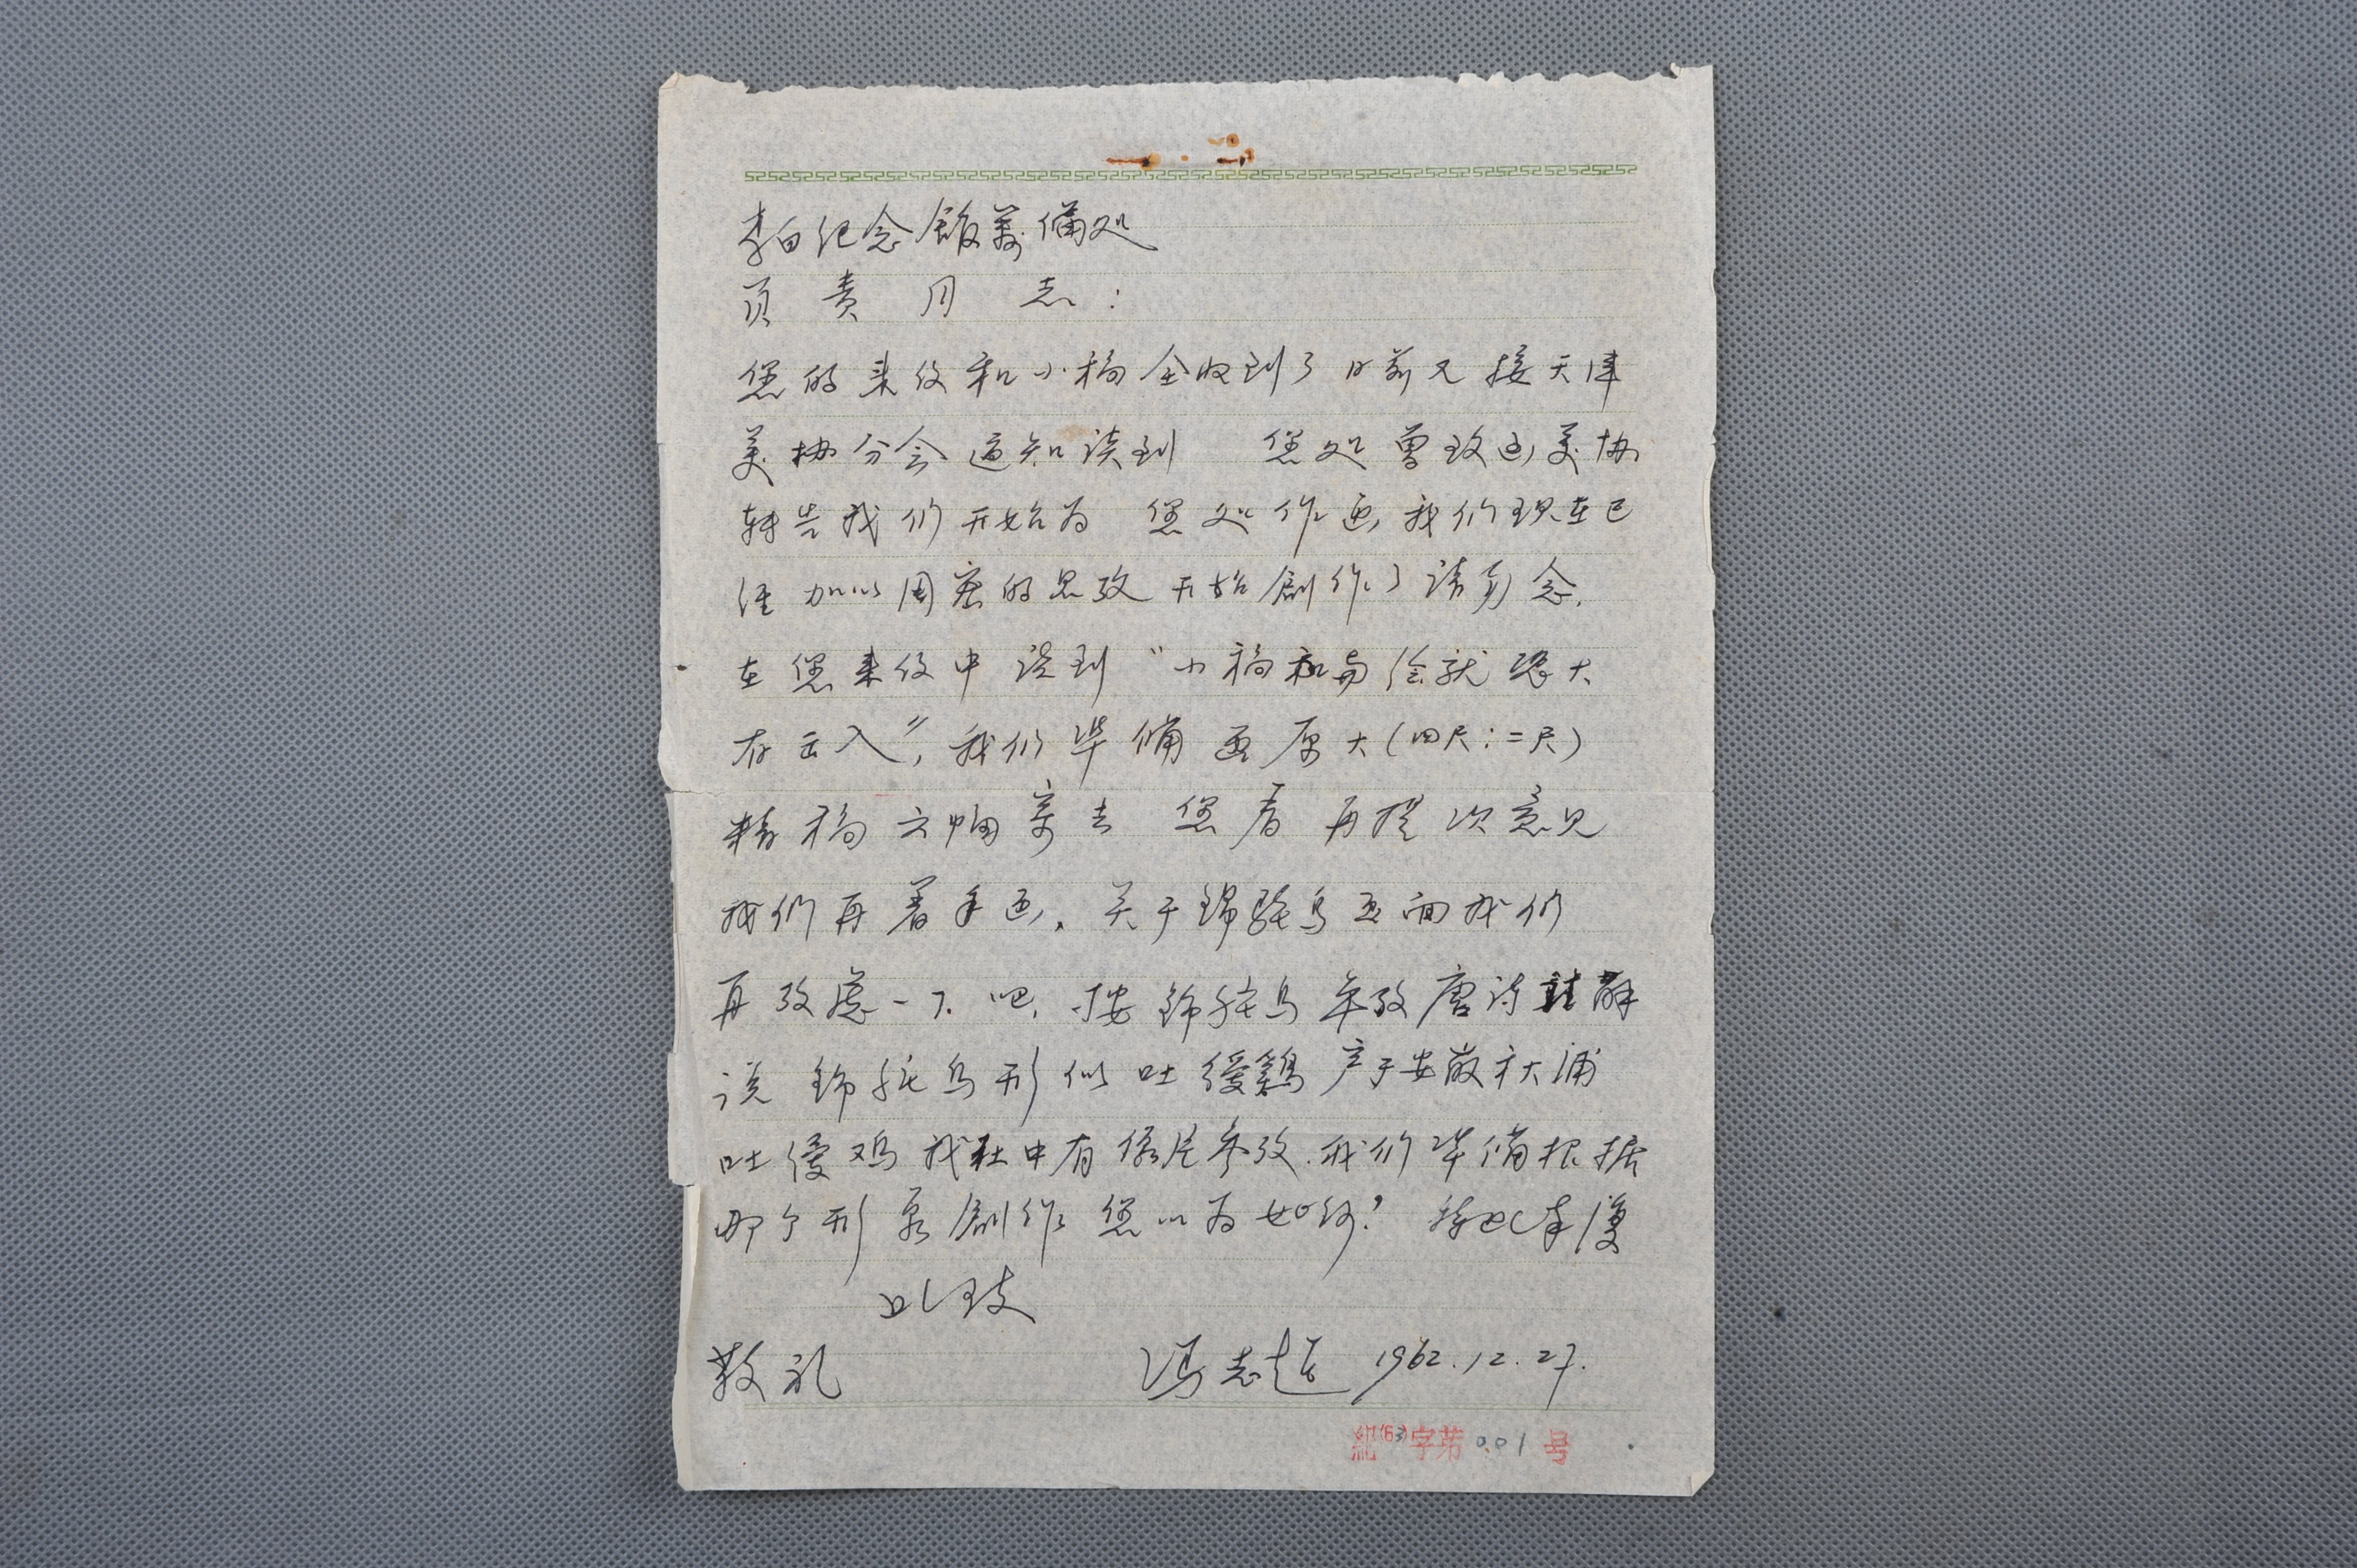 李白纪念馆筹備处
负责同志:
您的来信和小稿全收到了日前又接天津
美协分会通知谈到 您处曾致函美协
转告我们开始为 您处作画,我们现在已
经加以周密的思攷开始創作了请勿念.
在您来信中谈到"小稿和另绘就
有出入",我们準備画原大(四尺:二尺)
精稿六幅寄去 您看再提次意见
我们再着手画。关于锦驼鸟画面我们
再攷虑一下吧,按锦驼鸟年攷唐诗註解
说锦驼鸟形似吐绶鷄产于安徽秋浦
吐绶鸡我社中有像片参攷.我们準備根据
那个形象創作您以为如何? 特此奉復
此致
敬礼 冯志超 1962.12.27.
紀(63)字第001号